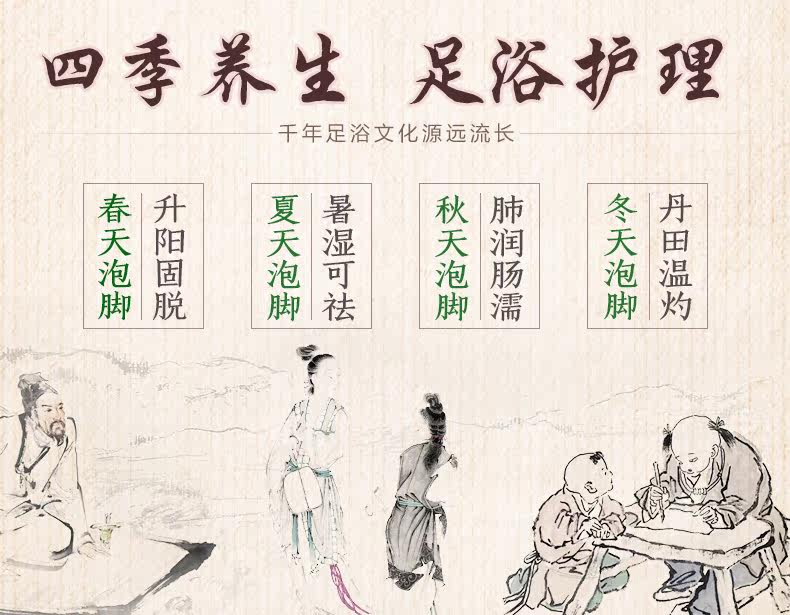 四季养生 足浴护理
千年足浴文化源远流长
春天泡脚
升阳固脱
夏天泡脚
暑湿可祛
秋天泡脚
肺润肠濡
冬天泡脚
丹田温灼